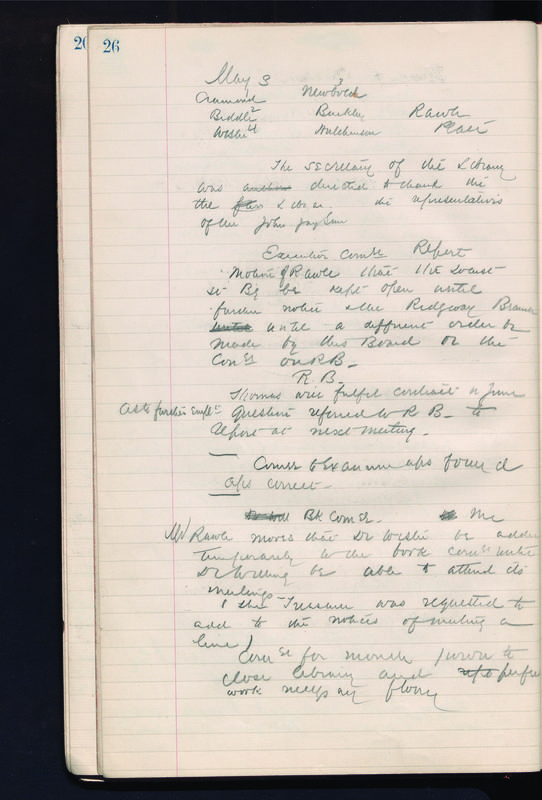 20 26
May 3
Cramond Newbold 3
Biddle 2 Buckley Rawle
Wistar 4 Hutchinson Platt
The Secretary of the Library
was directed to thank the
the the representatives
of the John Jay
Executive Comee Report
Motion of Rawle that the Locust
st Bg be kept open until
further notice & the Ridgway Branch
until a different order be
made by this Board or the
Comee on R B_
R. B_
Thomas will fulfil contract in June
as to further Question referred to R B_ to
report at next meeting_
Comee to Examine a/cs found
a/cs correct_
Bk Comee. Mr
Mr Rawle moves that Dr Wistar be added
temporarily to the book comee until
Dr Willing be able to attend its
meetings
(the Treasurer was requested to
add to the notices of meeting a
line)
Comee for month to
close library and
work